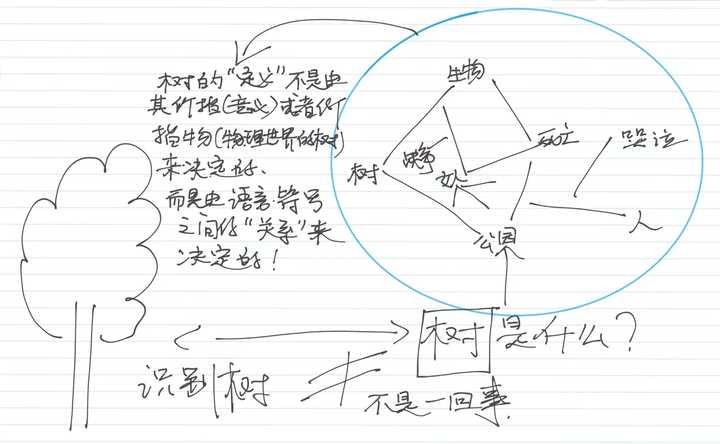 树的“定义”不是由
其所指(意义)或者所
指物(物理世界的树)
来决定的、
而是由语言符号
之间的“关系”来
决定的！
生物
死亡
哭泣
树
战争
人
公园
树是什么？
识别树
不是一回事.